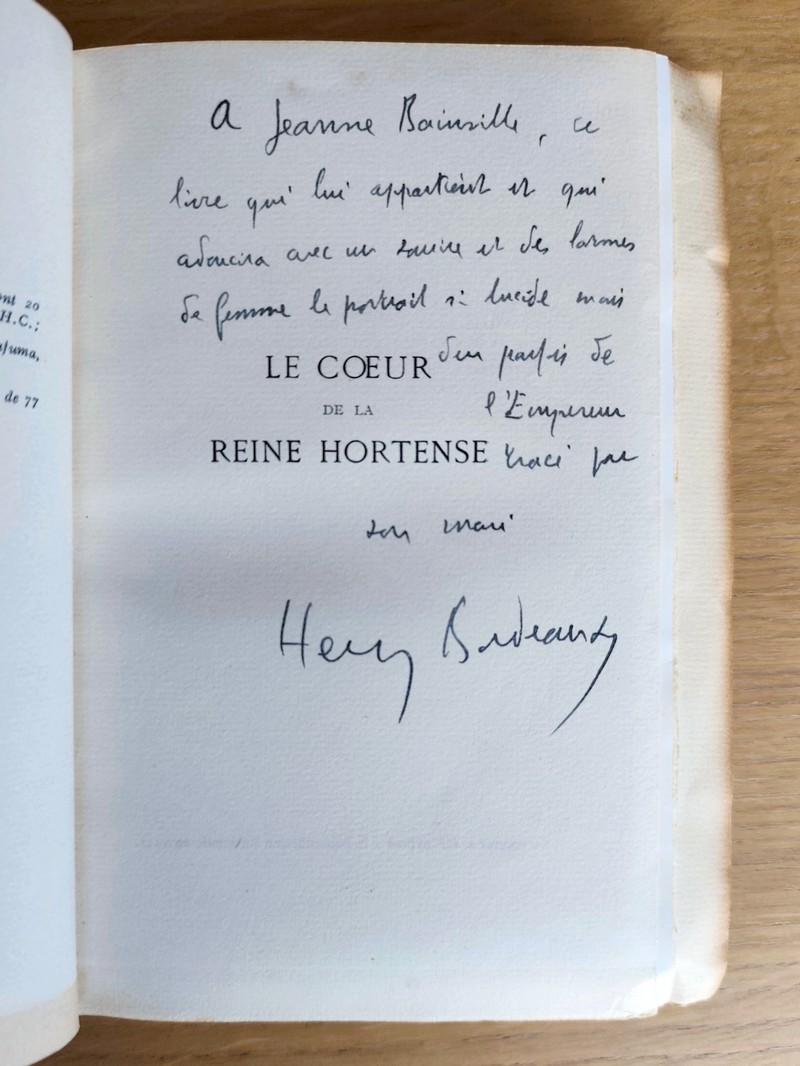 A Jeanne Bainville, ce
livre qui lui appartient et qui
adoucira avec un sourire et des larmes
de femme le portrait si lucide mais
dur parfois de
LE CŒUR
DE LA
l'Empereur
REINE HORTENSE
tracé par
son mari
Henry Bordeaux
ont 20
H.C.;
afuma,
de 77